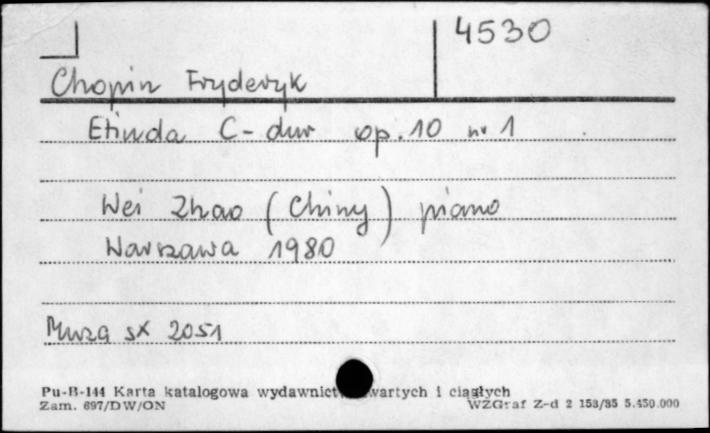 4530
Chopin Fryderyk
Etiuda C-dur op.10 nr 1
Wei Zhao (Chiny) piano
Warszawa 1980
Muza sx 2051
Pu-B-144 Karta katalogowa wydawnict wartych i ciągłych
Zam. 697/DW/ON WZGraf Z-d 2 153/85 5.450.000